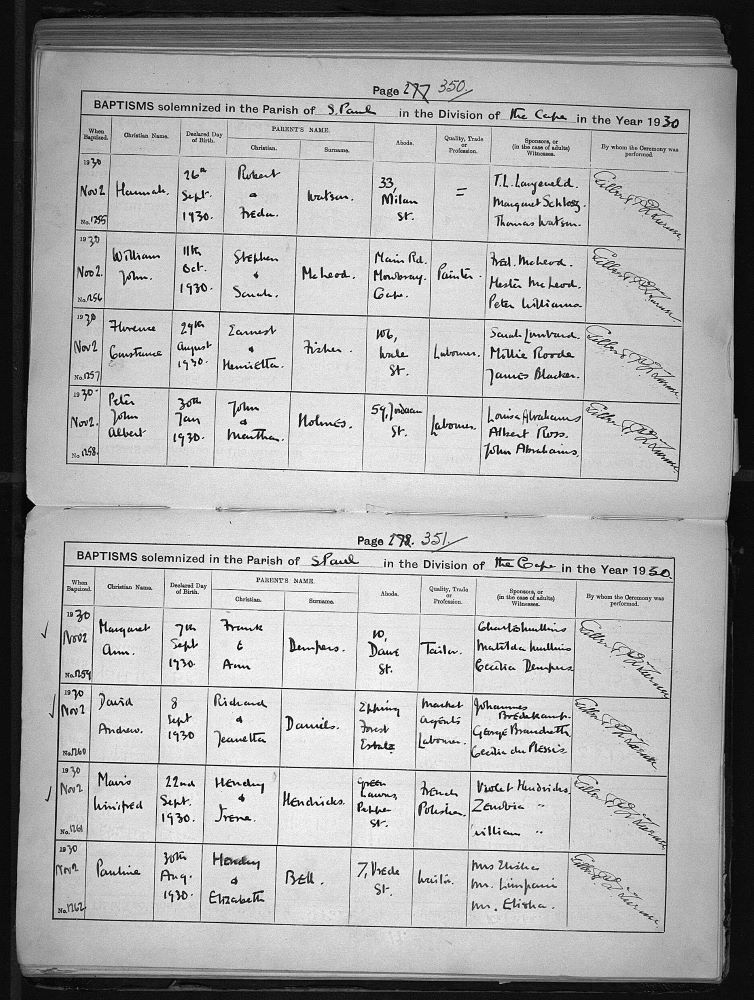 Page 277 350.
BAPTISMS solemnized in the Parish of S. Paul in the Division of the Cape in the Year 1930
When Baptized. Christian Name. Declared Day of Birth. PARENT'S NAME. Christian. Surname. Abode. Quality, Trade or Profession. Sponsors, or (in the case of adults) Witnesses. By whom the Ceremony was performed.
1930
Nov 2
No. 1255
Hannah.
26th
Sept.
1930.
Robert
&
Freda.
Watson.
33,
Milan
St.
=
T.L. Langeveld.
Margaret
Thomas Watson.
1930
Nov 2.
No. 1256
William
John.
11th
Oct.
1930.
Stephen
&
Sarah.
McLeod.
Main Rd.
Mowbray.
Cape.
Painter.
Fred. McLeod.
Hester McLeod.
Peter Williams
1930
Nov 2
No. 1257
Florence
Constance
29th
August
1930.
Earnest
&
Henrietta.
Fisher.
106,
Wale
St.
Labourer.
Sarah Lombard.
Millie Roode
James Blacker.
1930
Nov 2.
No. 1258.
Peter
John
Albert
30th
Jan
1930.
John
&
Martha.
Holmes.
59, Jordaan
St.
Labourer.
Louisa Abrahams
Albert Ross.
John Abrahams.
Page 278. 351.
BAPTISMS solemnized in the Parish of S. Paul in the Division of the Cape in the Year 1930.
When Baptized. Christian Name. Declared Day of Birth. PARENT'S NAME. Christian. Surname. Abode. Quality, Trade or Profession. Sponsors, or (in the case of adults) Witnesses. By whom the Ceremony was performed.
1930
Nov 2
No. 1259
Margaret
Ann.
7th
Sept
1930.
Frank
&
Ann
Dempers.
10,
Dave
St.
Tailor.
Charles Mullins
Matilda Mullins
Cecilia Dempers
1930
Nov 2
No. 1260
David
Andrew.
8
Sept
1930
Richard
&
Jeanetta
Daniels.
Epping
Forest
Estate
Market
Agents
Labourer.
Johannes
Bredekamp.
George
Cecilia du Plessis
1930
Nov 2
No. 1261
Mavis
Winifred
22nd
Sept.
1930.
Hendry
&
Irene.
Hendricks.
Green
Lawns,
Pepper
St.
French
Polisher.
Violet Hendricks.
Zenobia "
William "
1930
Nov 2
No. 1262
Pauline
30th
Aug.
1930.
Hendry
&
Elizabeth
Bell.
7, Vrede
St.
Waiter.
Mrs Elisha
Mr.
Mr. Elisha.